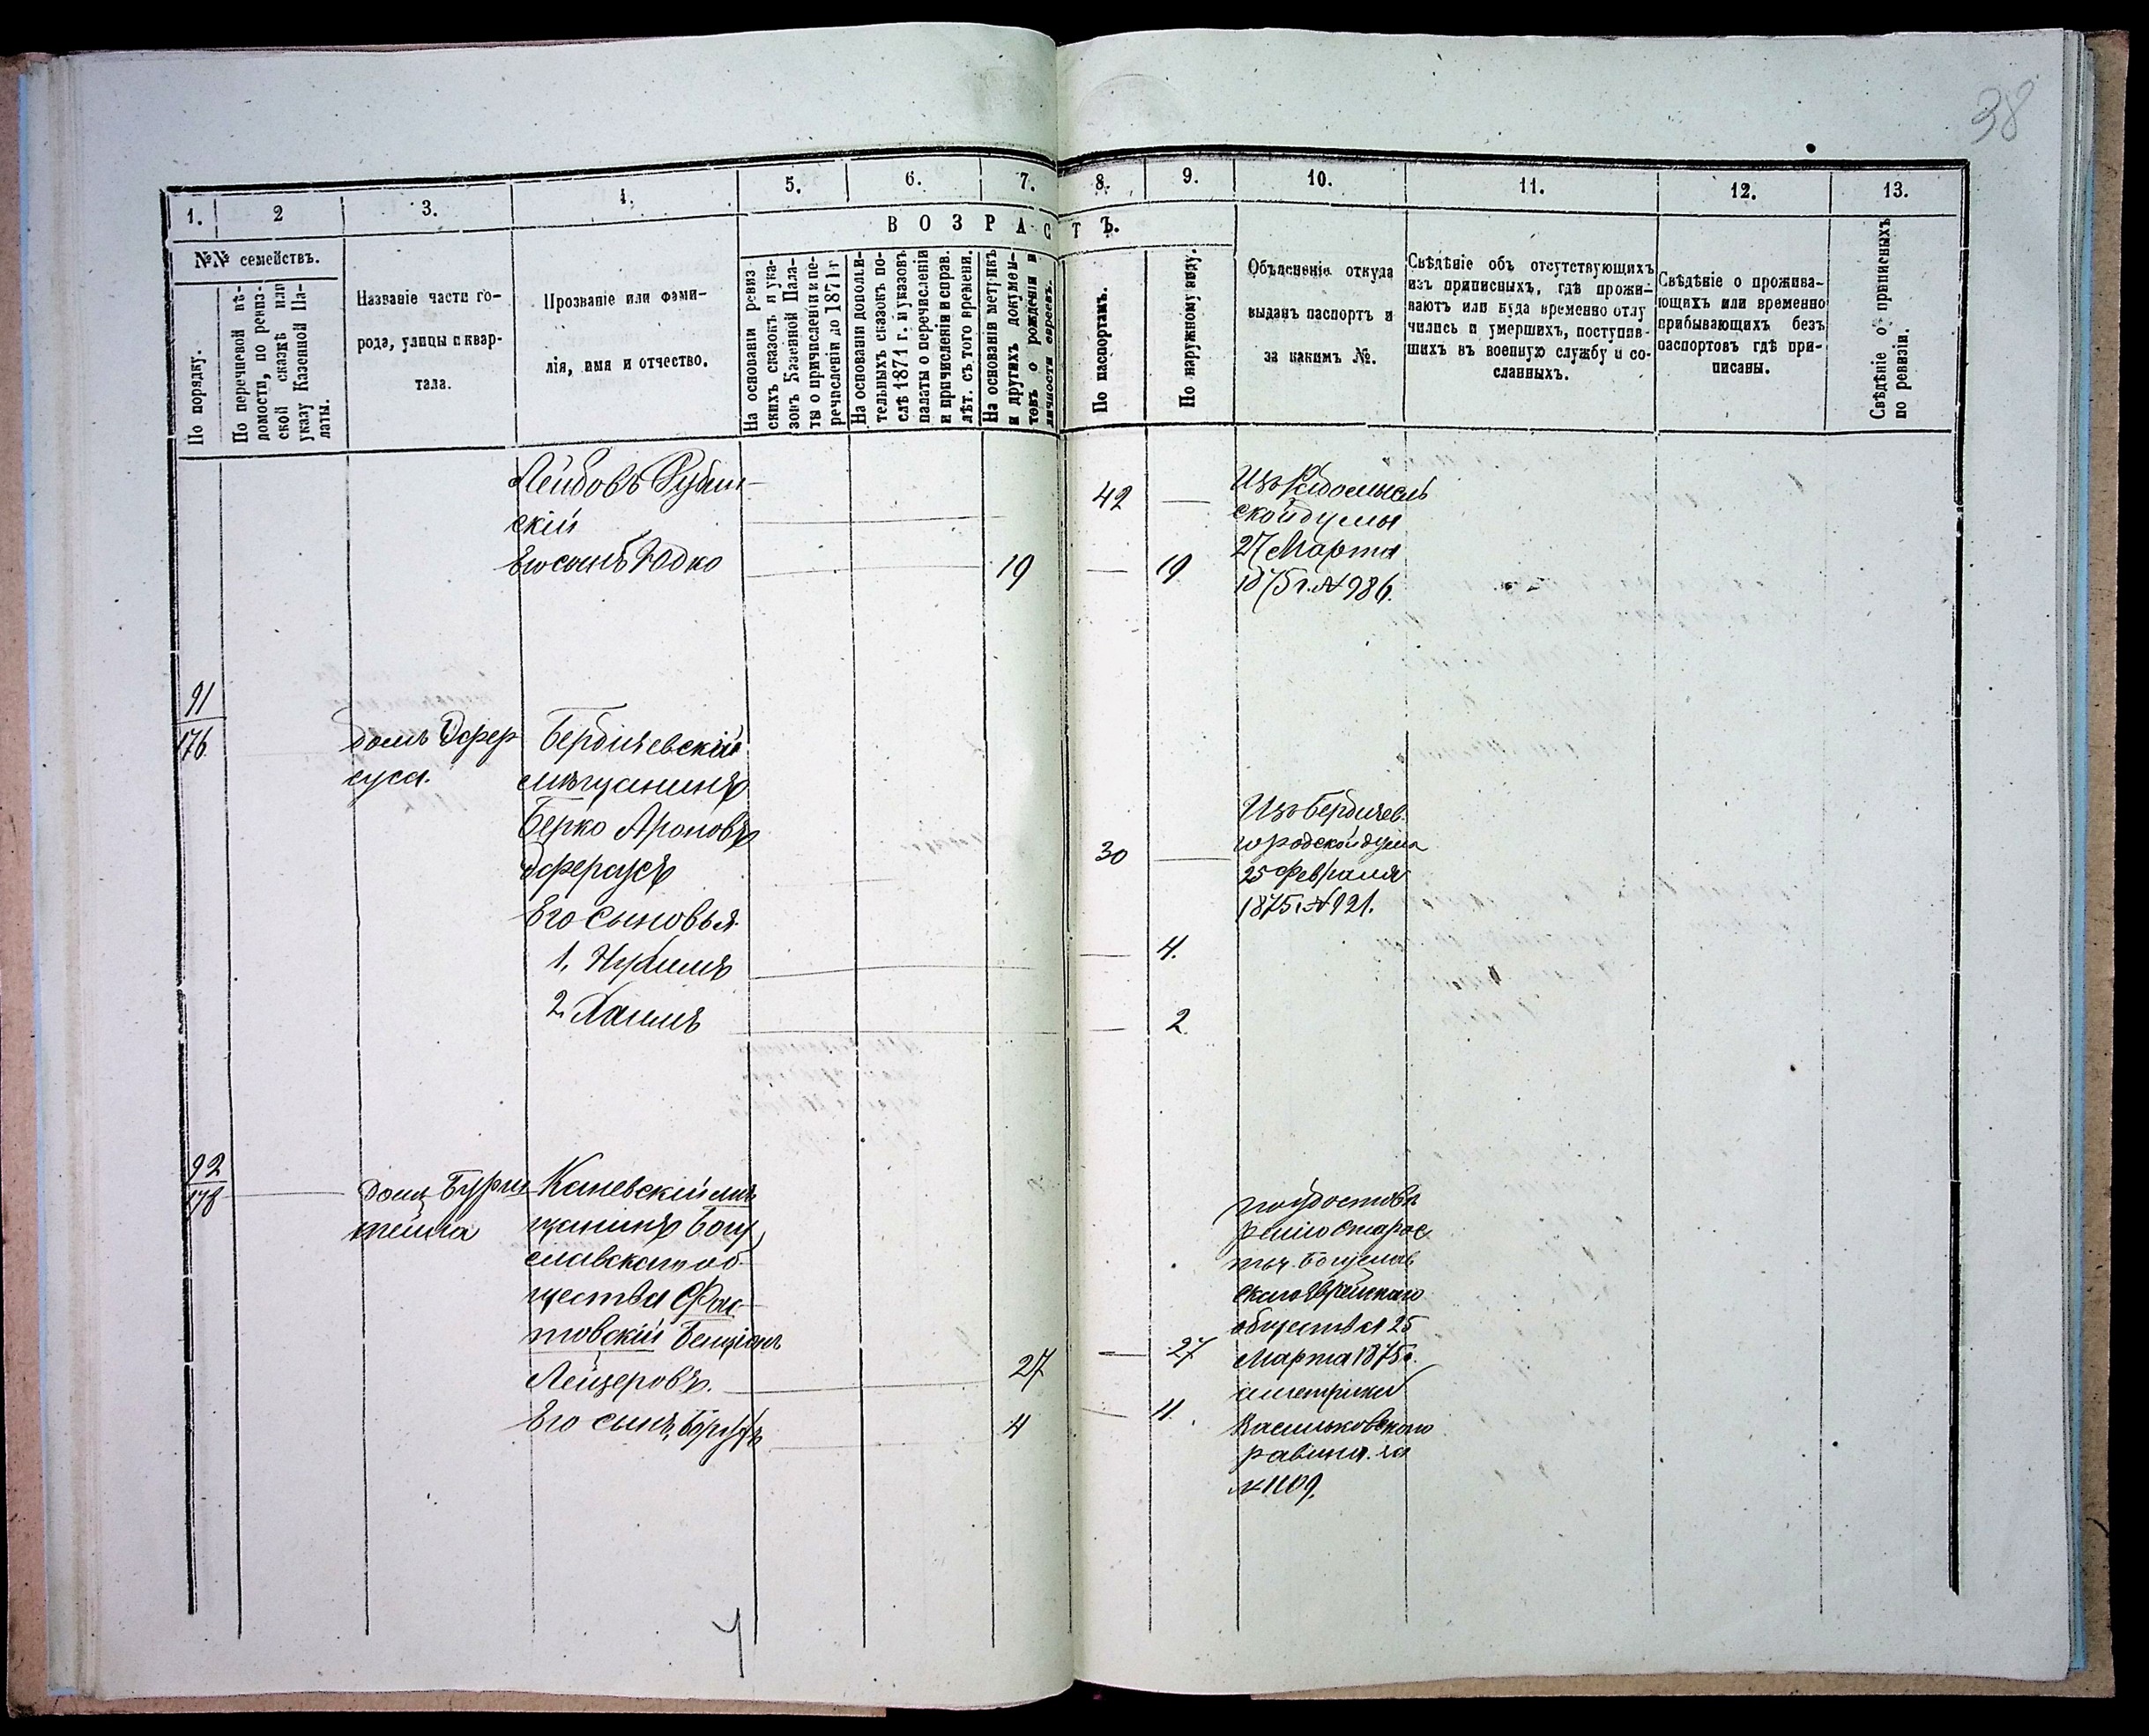 38
1.
2
3.
4.
5.
6.
7.
8.
9.
10.
11.
12.
13.
№№ семействъ.
ВОЗРАСТЪ.
По порядку.
По перечневой вѣ-
домости, по ревиз-
ской сказкѣ или
указу Казенной Па-
латы.
Названіе части го-
рода, улицы и квар-
тала.
Прозваніе или фами-
лія, имя и отчество.
На основаніи ревиз
скихъ сказокъ и ука-
зовъ Казенной Пала-
ты о причисленіи и пе-
речисленіи до 1871 г
На основаніи дополни-
тельныхъ сказокъ по-
слѣ 1871 г. и указовъ
палаты о перечисленіи
и причисленіи и справ.
лѣт. съ того времени.
На основаніи метрикъ
и другихъ докумен-
товъ о рожденіи и
личности евреевъ.
По паспортамъ.
По наружному виду.
Объясненіе откуда
выданъ паспортъ и
за какимъ №.
Свѣдѣніе объ отсутствующихъ
изъ приписныхъ, гдѣ прожи-
ваютъ или куда временно отлу
чились и умершихъ, поступив-
шихъ въ военную службу и со-
сланныхъ.
Свѣдѣніе о прожива-
ющихъ или временно
прибывающихъ безъ
паспортовъ гдѣ при-
писаны.
Свѣдѣніе о приписныхъ
по ревизіи.
Лейбовъ
скій
42
Изъ Радомысль
ской думы
27 Марта
1875 г. № 986.
Его сынъ
19
19
91
176
домъ Эфер
суса.
Бердичевскій
мѣщанинъ
Берко Ароновъ
Эферусъ
30
Изъ Бердичев.
городской думы
25 Февраля
1875 г. № 921.
Его сыновья
1. Нухимъ
4.
2. Хаимъ
2
92
178
домъ Бурш
тейна
Каневскій мѣ
щанинъ Богу
славскаго об-
щества Фас-
товскій Бенціонъ
Лейзеровъ.
27
27
Его сынъ Борухъ
4
4.
по удостовѣ
ренію Старос
ты Богуслав
скаго Еврейскаго
общества 25
Марта 1875 г.
и метрики
Васильковскаго
равина за
№ 1109.